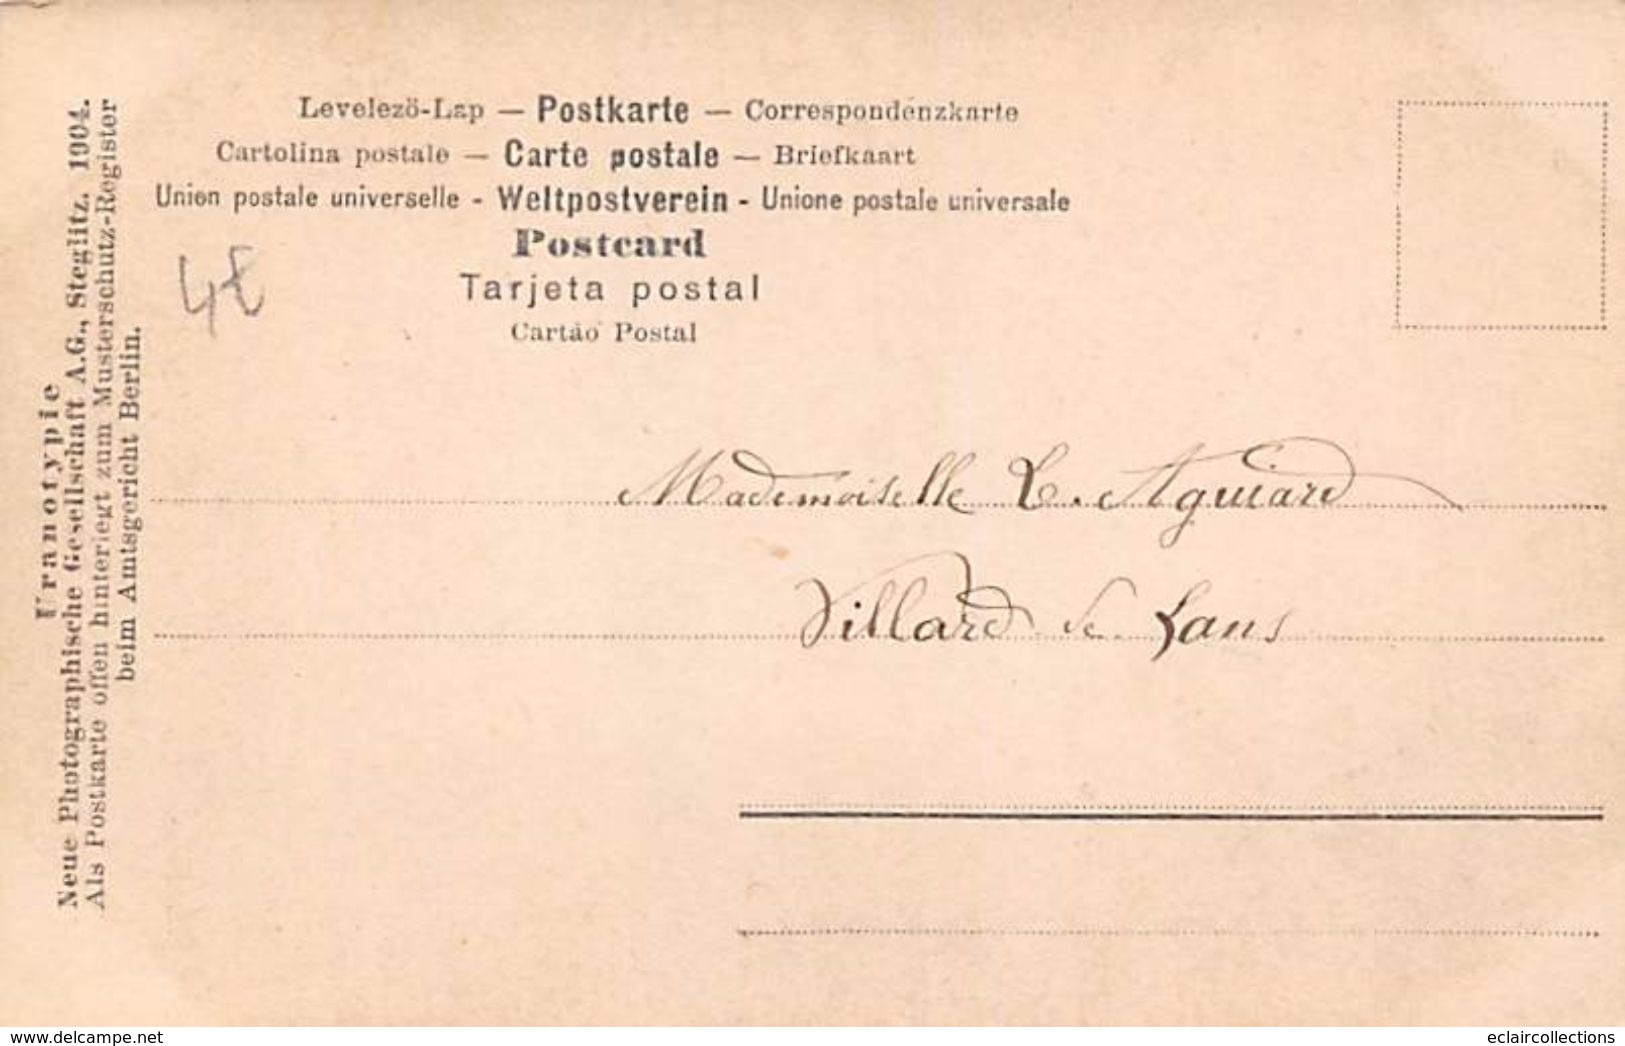 Levelezö-Lap — Postkarte — Correspondenzkarte
Cartolina postale — Carte postale — Briefkaart
Union postale universelle - Weltpostverein - Unione postale universale
Postcard
Tarjeta postal
Cartão Postal
Uranotypie
Neue Photographische Gesellschaft A.G., Steglitz. 1904.
Als Postkarte offen hinterlegt zum Musterschutz-Register
beim Amtsgericht Berlin.
Mademoiselle Aguiard
Villard de Lans
www.delcampe.net
eclaircollections